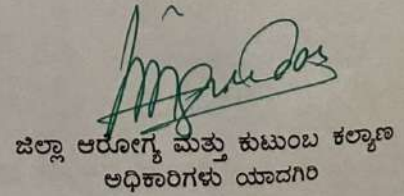 ಜಿಲ್ಲಾ ಆರೋಗ್ಯ ಮತ್ತು ಕುಟುಂಬ ಕಲ್ಯಾಣ
ಅಧಿಕಾರಿಗಳು ಯಾದಗಿರಿ